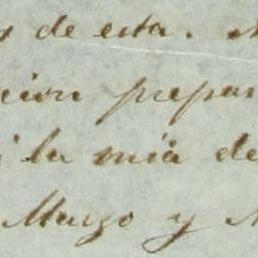 de esta.
cion prepar
i la mia de
Marzo y